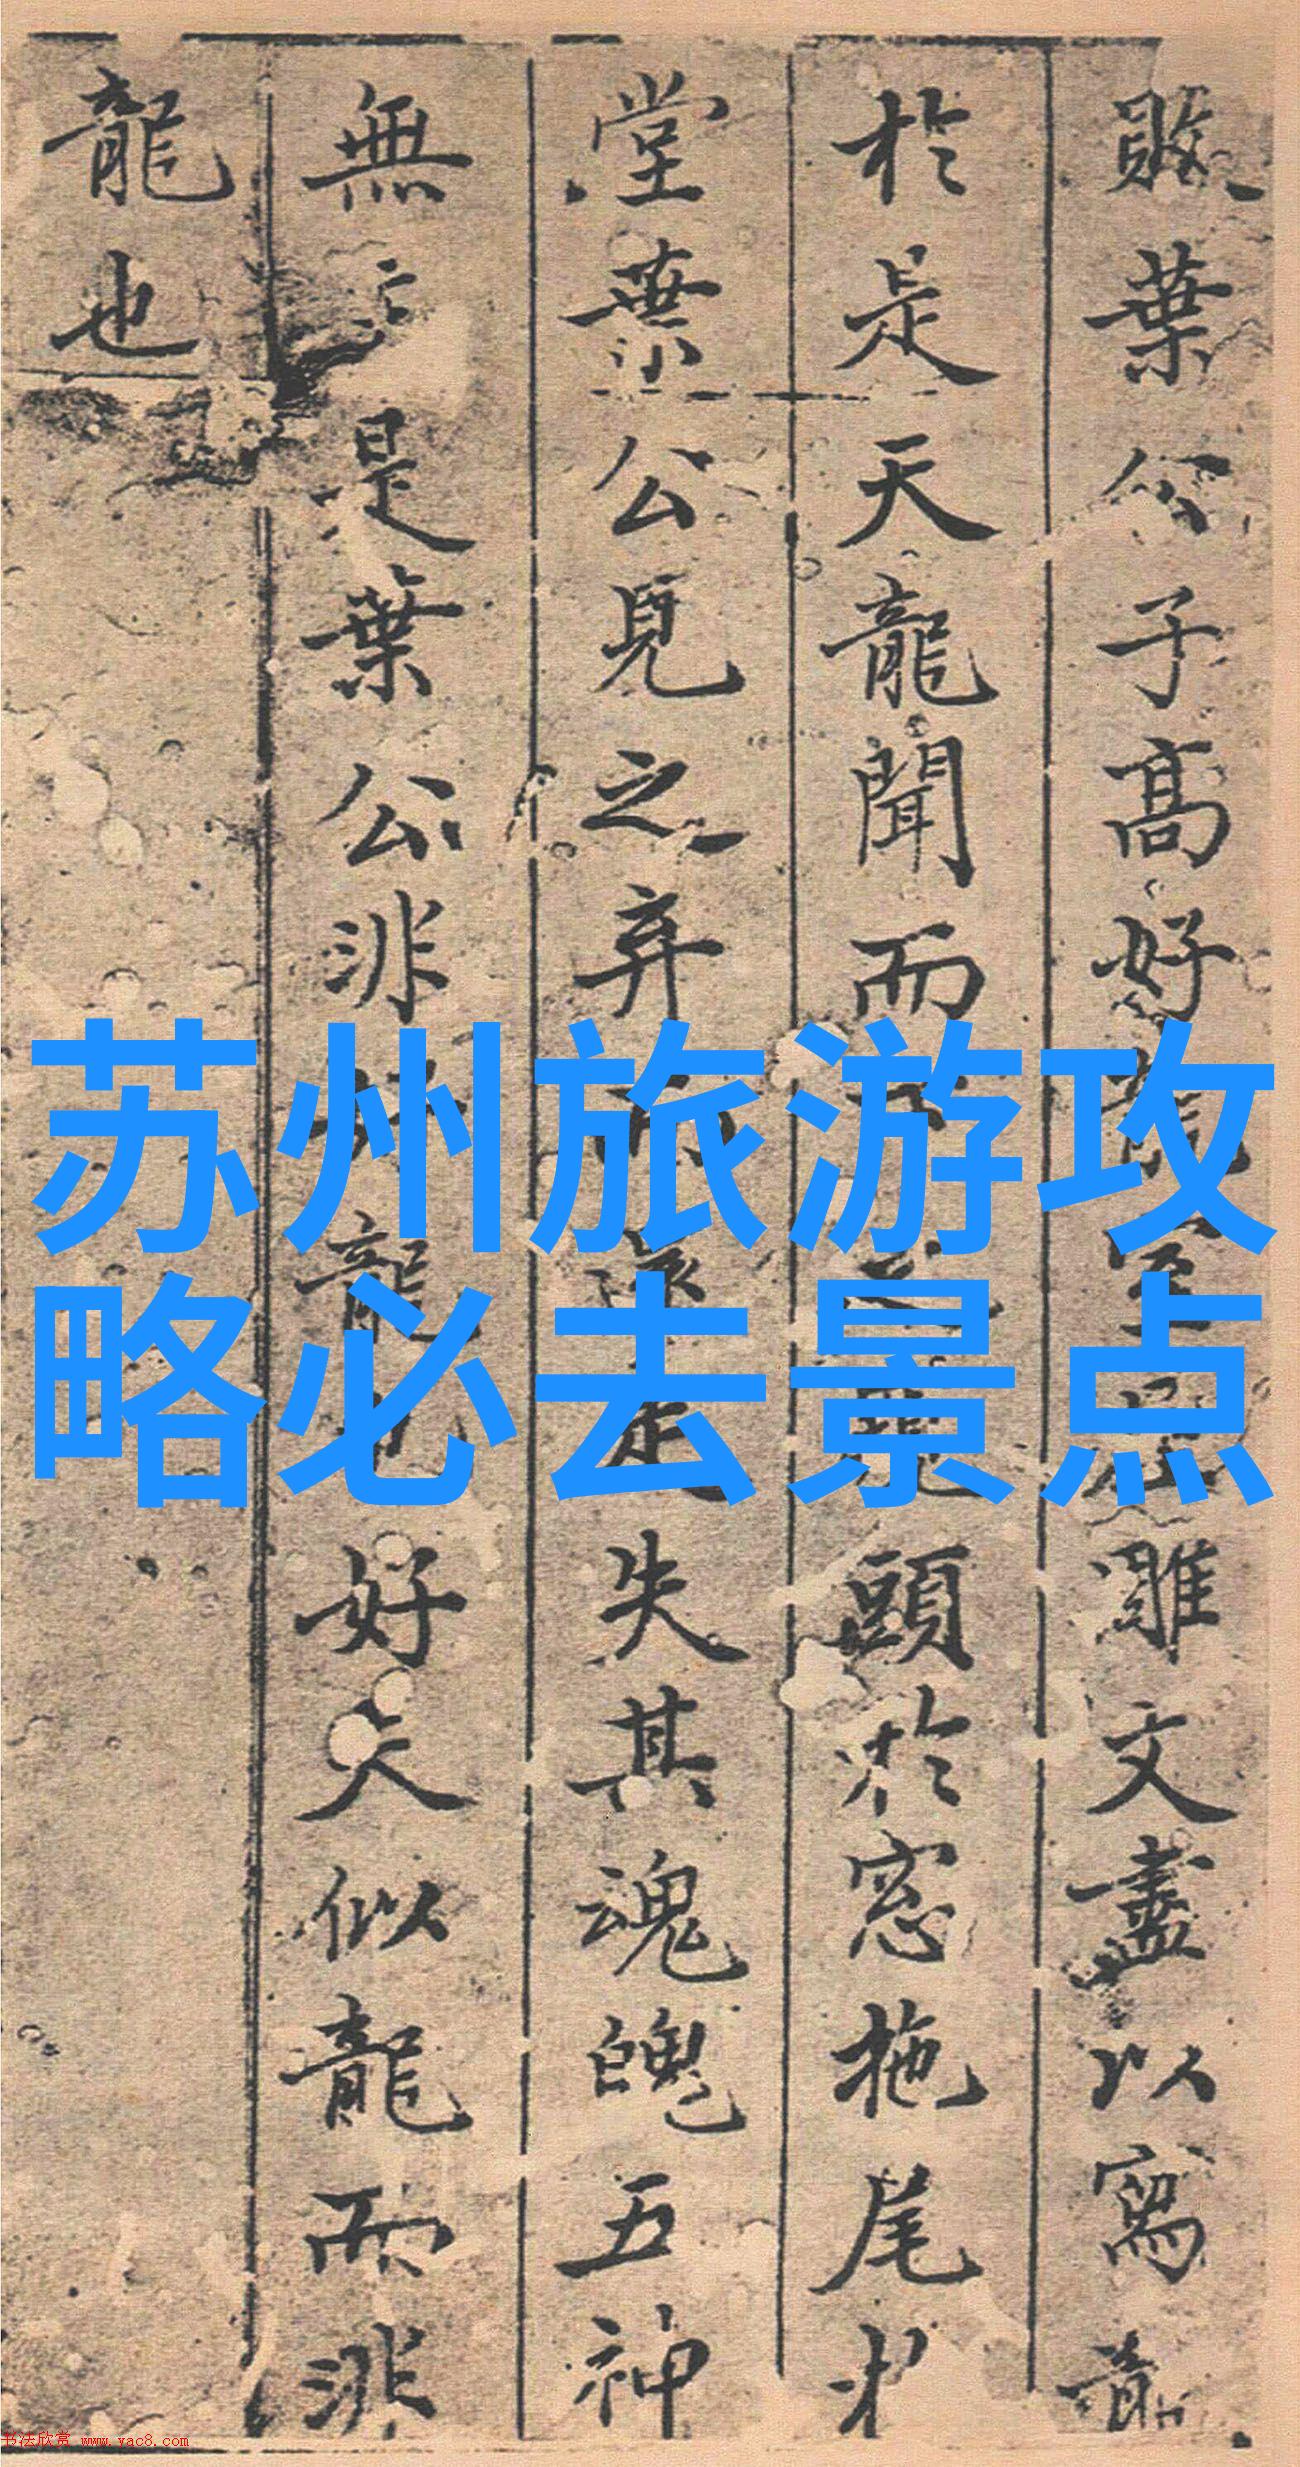 敗葉公子高好龍室屋雕文盡以寫龍
於是天龍聞而下之窺頭於窓拖尾於
堂葉公見之弃而還走失其魂魄五神
無主是葉公非好龍也好夫似龍而非
龍也
苏州旅游攻
略必去景点
书法欣赏 www.yac8.com